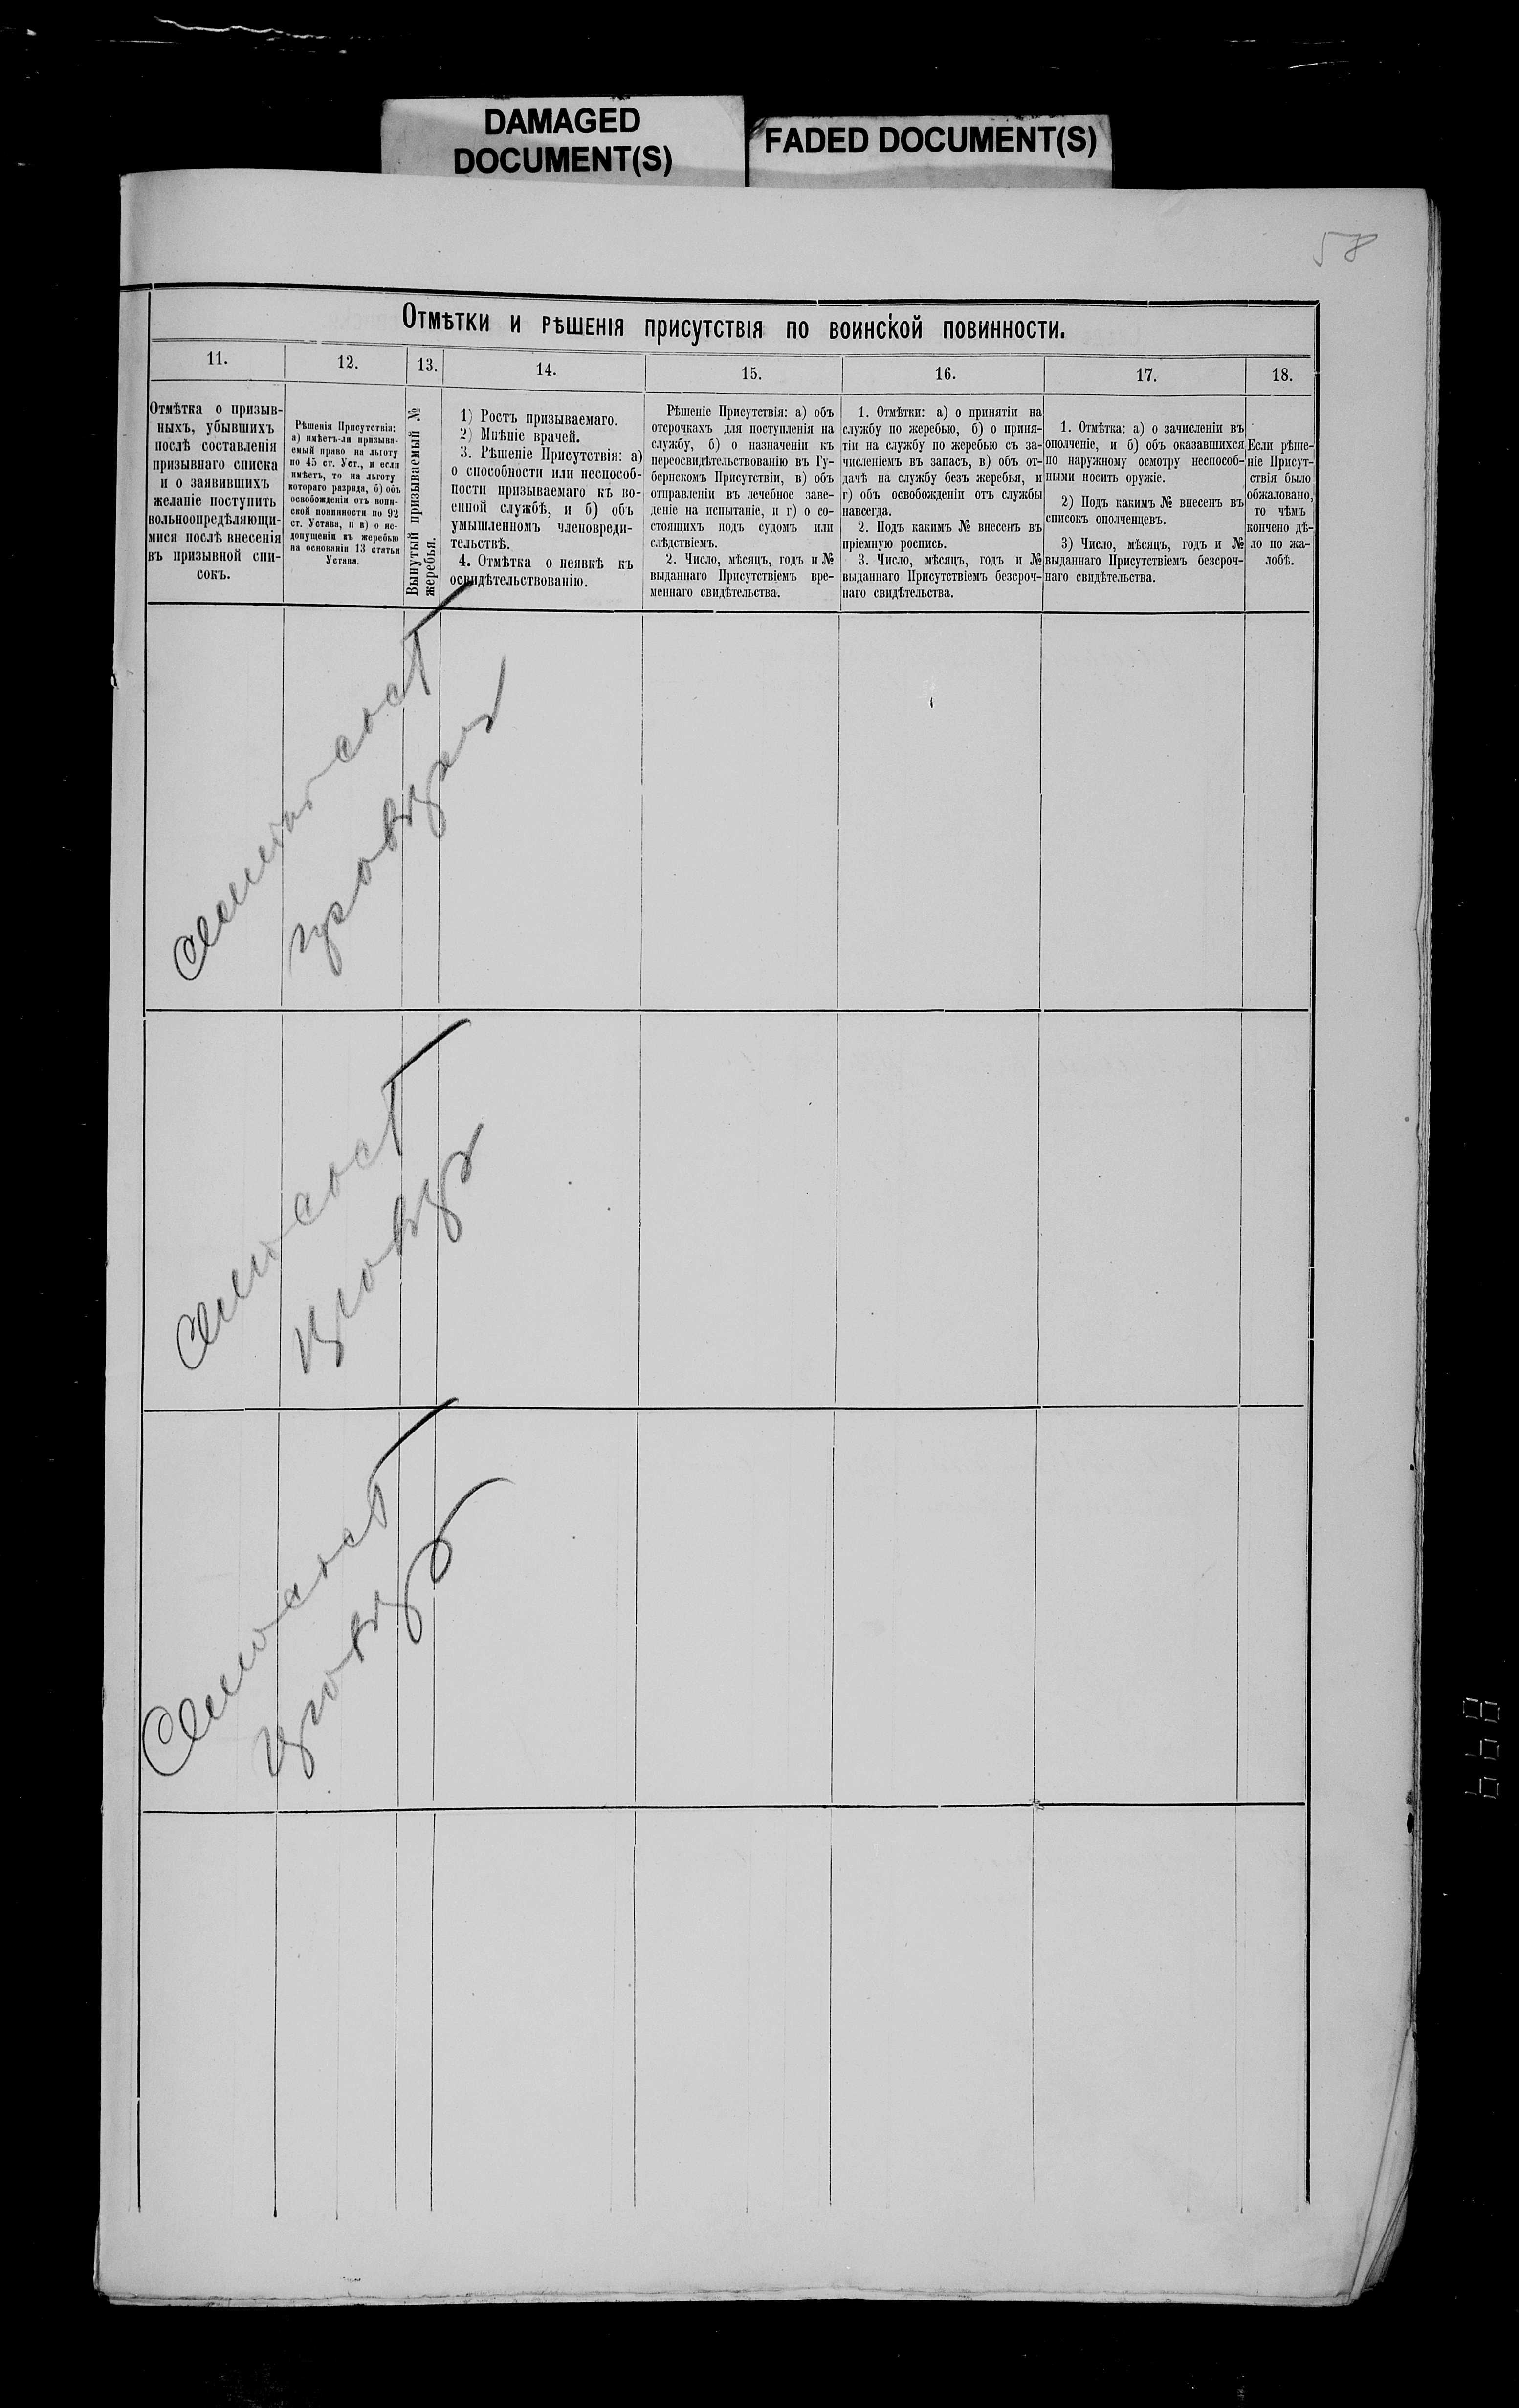 DAMAGED
DOCUMENT(S)
FADED DOCUMENT(S)
58
Отмѣтки и рѣшенія присутствія по воинской повинности.
11.
12.
13.
14.
15.
16.
17.
18.
Отмѣтка о призыв-
ныхъ, убывшихъ
послѣ составленія
призывнаго списка
и о заявившихъ
желаніе поступить
вольноопредѣляющи-
мися послѣ внесенія
въ призывной спи-
сокъ.
Рѣшенія Присутствія:
а) имѣетъ-ли призыва-
емый право на льготу
по 45 ст. Уст., и если
имѣетъ, то на льготу
котораго разряда, б) объ
освобожденіи отъ воин-
ской повинности по 92
ст. Устава, и в) о не-
допущеніи къ жеребью
на основаніи 13 статьи
Устава.
Вынутый призываемый №
жеребья.
1) Ростъ призываемаго.
2) Мнѣніе врачей.
3. Рѣшеніе Присутствія: а)
о способности или неспособ-
ности призываемаго къ во-
енной службѣ, и б) объ
умышленномъ членовреди-
тельствѣ.
4. Отмѣтка о неявкѣ къ
освидѣтельствованію.
Рѣшеніе Присутствія: а) объ
отсрочкахъ для поступленія на
службу, б) о назначеніи къ
переосвидѣтельствованію въ Гу-
бернскомъ Присутствіи, в) объ
отправленіи въ лечебное заве-
деніе на испытаніе, и г) о со-
стоящихъ подъ судомъ или
слѣдствіемъ.
2. Число, мѣсяцъ, годъ и №
выданнаго Присутствіемъ вре-
меннаго свидѣтельства.
1. Отмѣтки: а) о принятіи на
службу по жеребью, б) о приня-
тіи на службу по жеребью съ за-
численіемъ въ запасъ, в) объ от-
дачѣ на службу безъ жеребья, и
г) объ освобожденіи отъ службы
навсегда.
2. Подъ какимъ № внесенъ въ
пріемную роспись.
3. Число, мѣсяцъ, годъ и №
выданнаго Присутствіемъ безсроч-
наго свидѣтельства.
1. Отмѣтка: а) о зачисленіи въ
ополченіе, и б) объ оказавшихся
по наружному осмотру неспособ-
ными носить оружіе.
2) Подъ какимъ № внесенъ въ
списокъ ополченцевъ.
3) Число, мѣсяцъ, годъ и №
выданнаго Присутствіемъ безсроч-
наго свидѣтельства.
Если рѣше-
ніе Присут-
ствія было
обжаловано,
то чѣмъ
кончено дѣ-
ло по жа-
лобѣ.
899